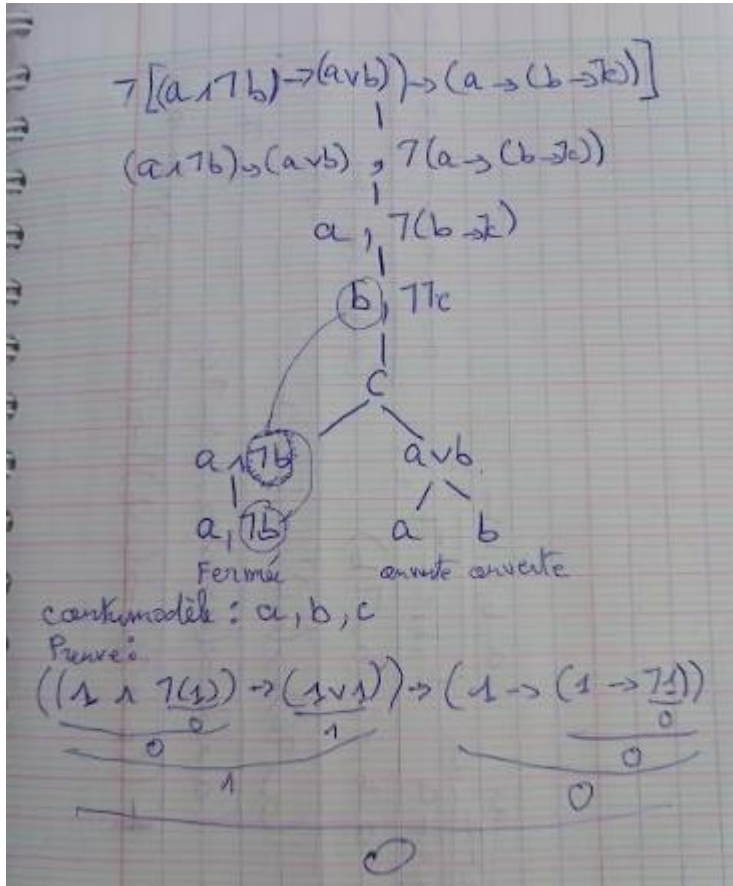 ¬[(a∧¬b)→(a∨b))→(a→(b→¬c))]
(a∧¬b)→(a∨b) , ¬(a→(b→¬c))
a, ¬(b→¬c)
b, ¬¬c
C
a∧¬b a∨b
a, ¬b a b
Fermée ouverte ouverte
contremodèle : a, b, c
Preuve :
((1 ∧ ¬(1)) → (1∨1)) → (1 → (1 → ¬1))
0 1 0
0 0
1 0
0